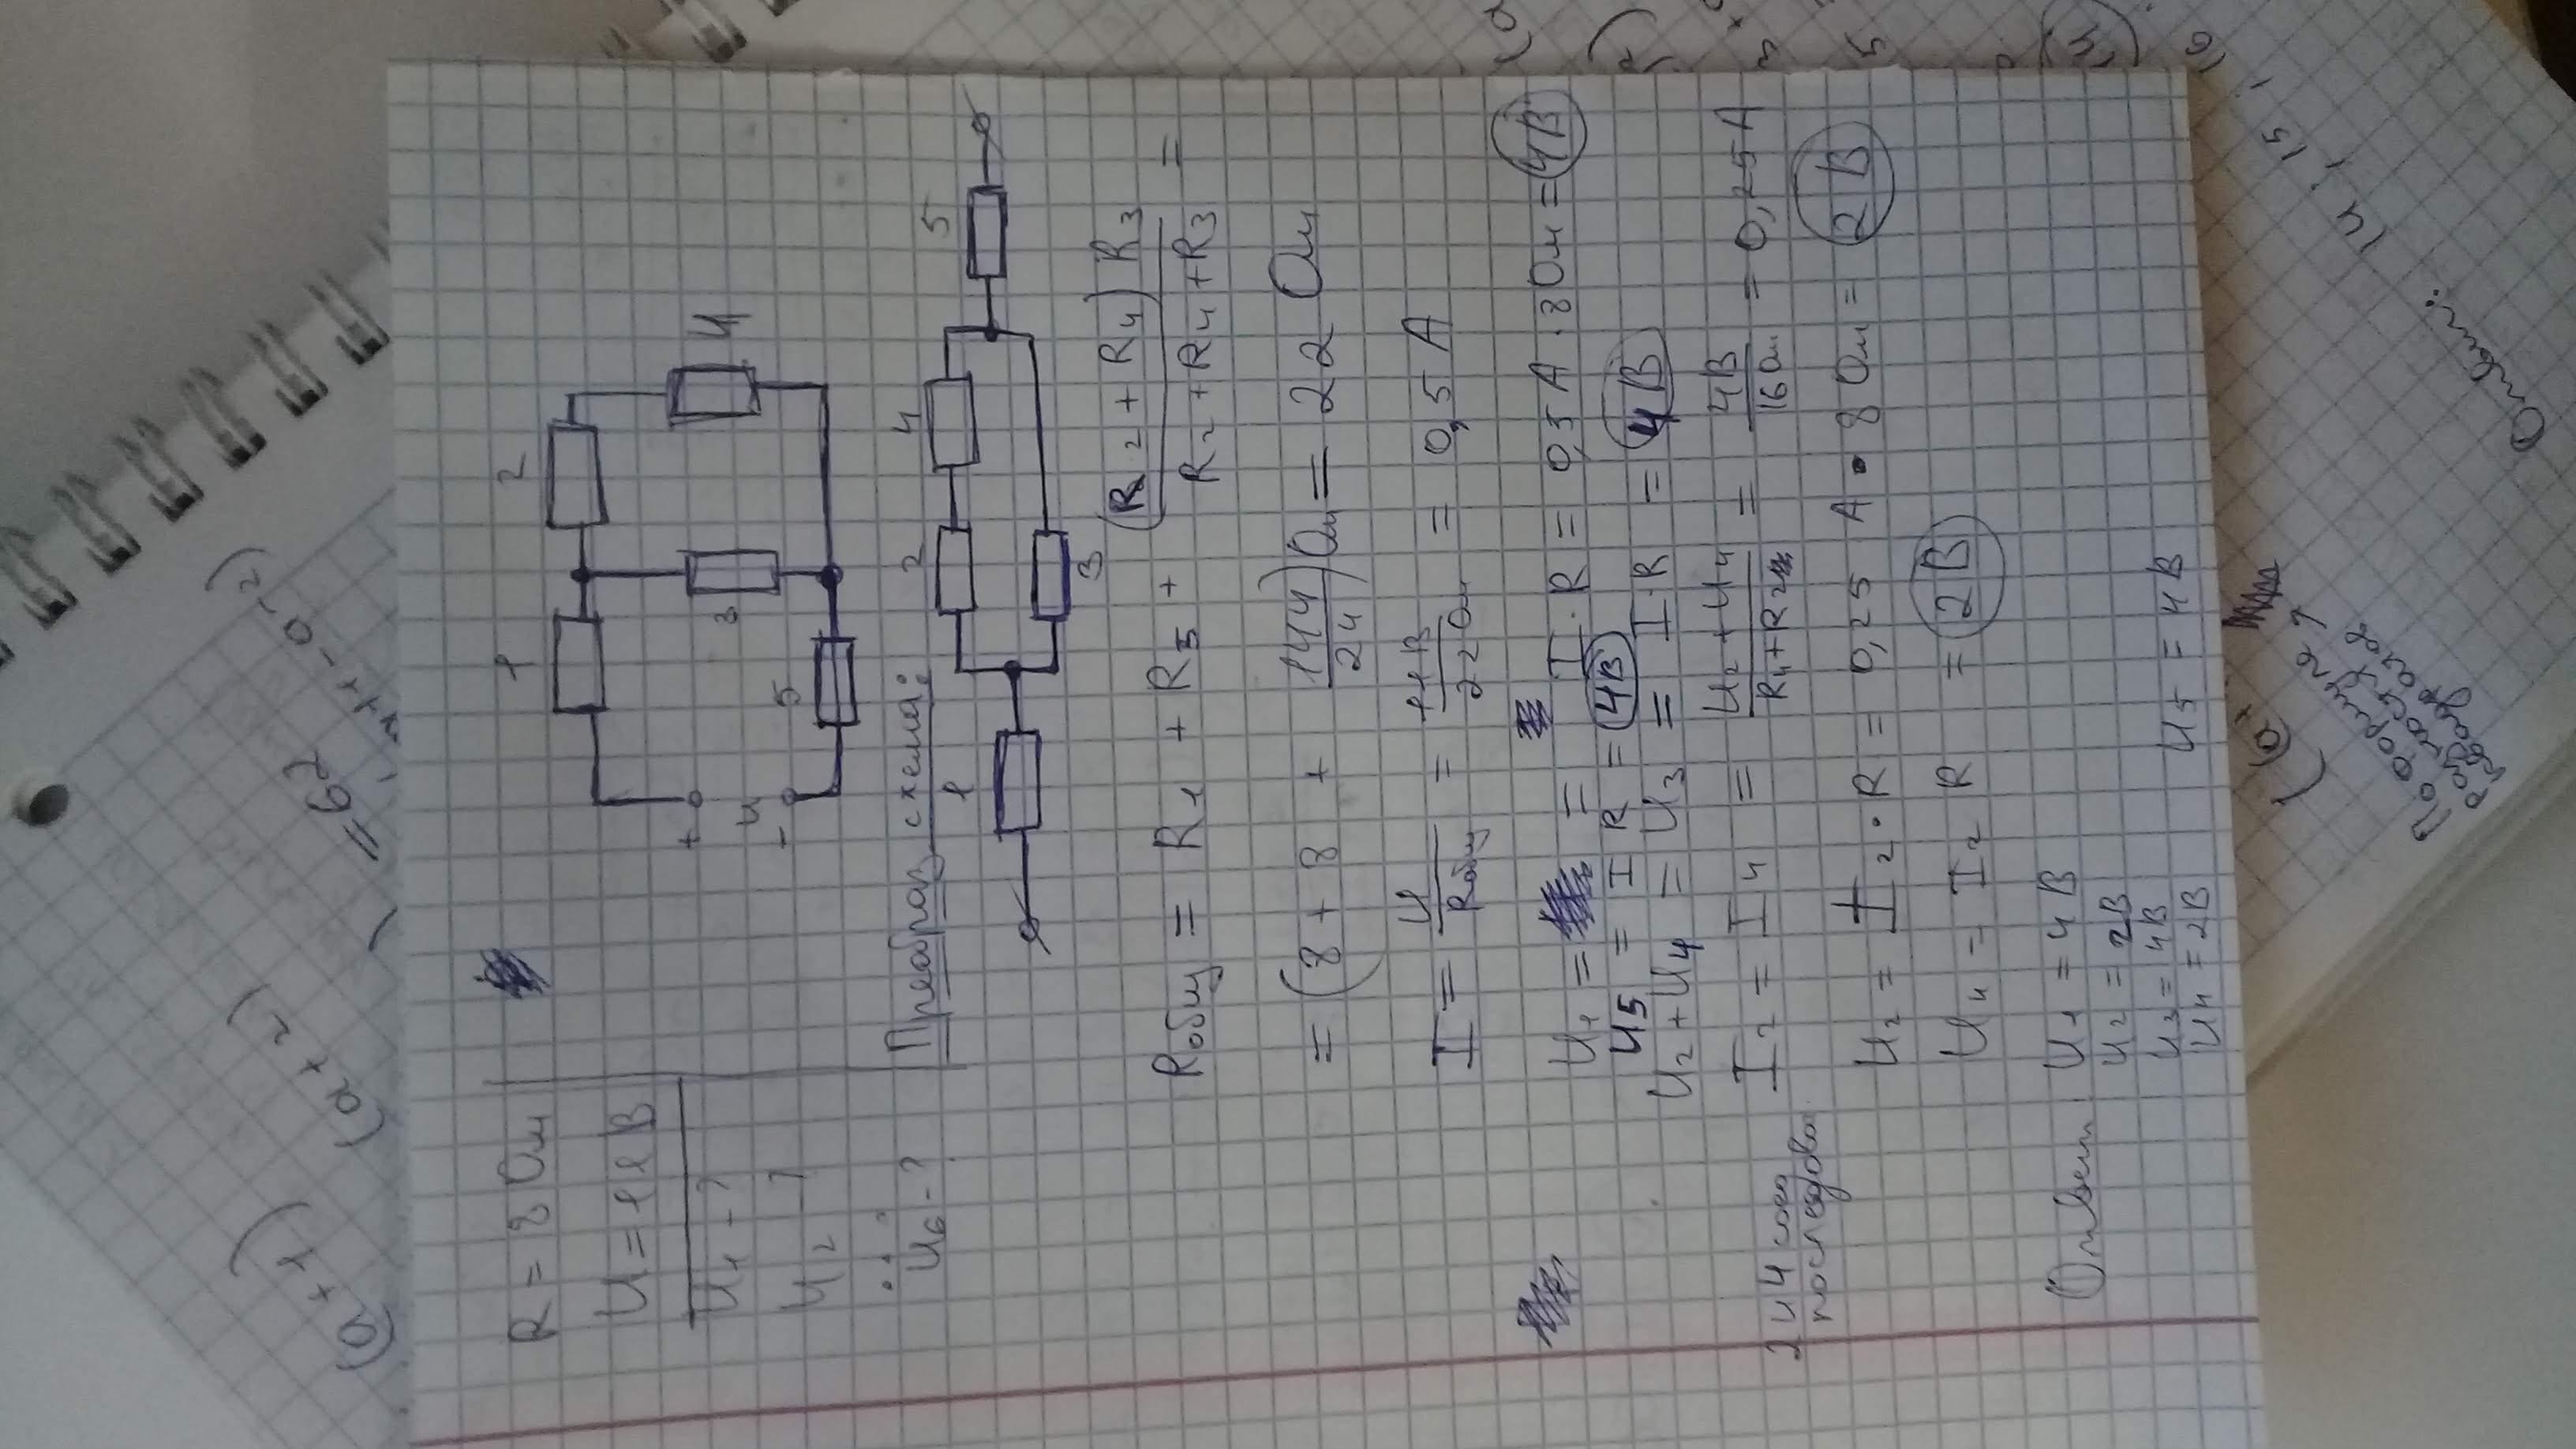 R = 8 Ом
U = 11 В
U₁ - ?
U₂ - ?
U₆ - ?
1 2
3 4
5
+ U -
Преобраз схема:
1 2 4 5
3
Rобщ = R₁ + R₅ + (R₂ + R₄) R₃ / R₂ + R₄ + R₃ =
= (8 + 8 + 144 / 24) Ом = 22 Ом
I = U / Rобщ = 11 В / 22 Ом = 0,5 А
U₁ = I · R = 0,5 А · 8 Ом = 4В
U5 = I R = 4В
U₂ + U₄ = U₃ = I · R = 4В
2 и 4 соед последова
I₂ = I₄ = U₂ + U₄ / R₄ + R₂ = 4В / 16 Ом = 0,25 А
U₂ = I₂ · R = 0,25 А · 8 Ом = 2 В
U₄ = I₂ R = 2В
Ответ U₁ = 4 В
U₂ = 2В
U₃ = 4В
U₄ = 2В U₅ = 4В
(a + 1)
(a + 2)
= 6²
Ответ:
По формуле